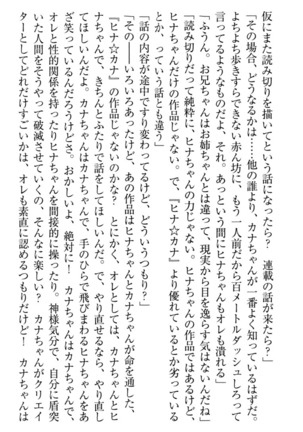 仮にまた読み切りを描いてという話になったら？　連載の話が来たら？」
「その場合、どうなるかは……他の誰より、カナちゃんが一番よく知っているはずだ。
よちよち歩きすらできない赤ん坊に、もう一人前だから百メートルダッシュしろって
言ってるようなものだよ。それ。あっという間にヒナちゃんもオレも潰れる」
「ふうん。お兄ちゃんはお姉ちゃんとは違って、現実から目を逸らす気はないんだね」
「読み切りだって純粋に、ヒナちゃんの力じゃない。ヒナちゃんの作品ではあるけど、
ヒナちゃんだけの作品じゃない。で、『ヒナ☆カナ』より優れているとか劣っている
とか、っていう話とも違う」
「話の内容が途中ですり変わってるけど、どういうつもり？」
「その――いろいろあったけど、あの作品はヒナちゃんとカナちゃんが命を通した、
『ヒナ☆カナ』の作品じゃないのかな？　とにかく、オレとしては、カナちゃんとヒ
ナちゃんで、きちんとふたりで話をしてほしいんだ。で、やり直せるなら、やり直し
てほしいんだよ。カナちゃんはカナちゃんで、手のひらで飛びまわるヒナちゃんをあ
ざ笑っているんだろうけどさ。おかしいよ、絶対に！　カナちゃんはカナちゃんで、
オレと性的関係を持ったりヒナちゃんを間接的に操ったり。神様気分で、自分に盾突
いた人間をそうやって破滅させていくの、そんなに楽しい？　カナちゃんがクリエイ
ターとしてどれだけすごいかは、オレも素直に認めるつもりだけど！　カナちゃんは